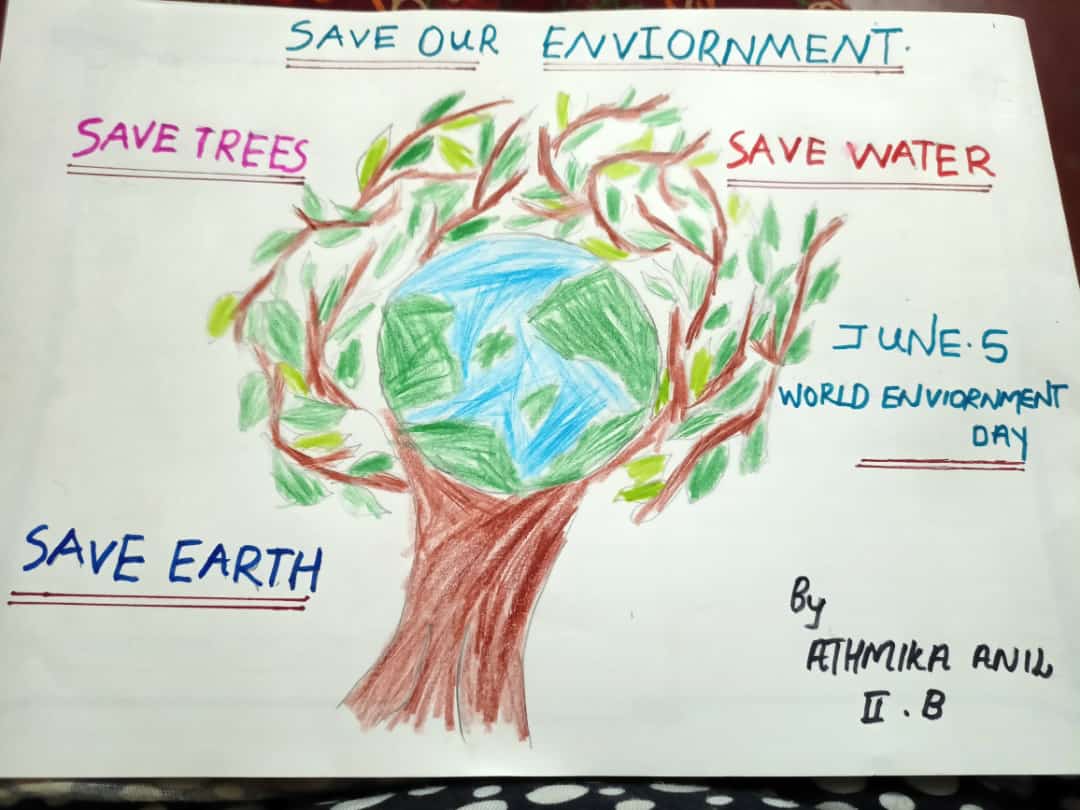 SAVE OUR ENVIORNMENT.
SAVE TREES
SAVE WATER
JUNE.5
WORLD ENVIORNMENT
DAY
SAVE EARTH
By
ATHMIKA ANIL
II.B